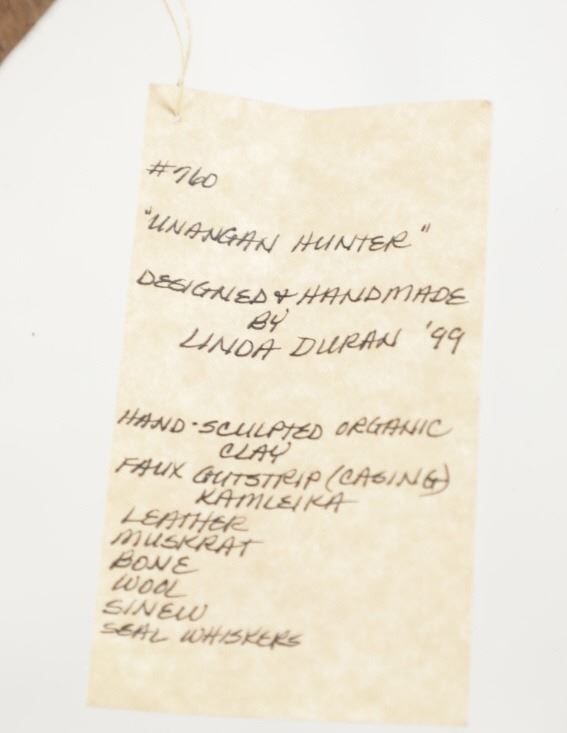 #760
"UNANGAN HUNTER"
DESIGNED & HANDMADE
BY
LINDA DURAN '99
HAND-SCULPTED ORGANIC
CLAY
FAUX GUTSTRIP (CASING)
KAMLEIKA
LEATHER
MUSKRAT
BONE
WOOL
SINEW
SEAL WHISKERS